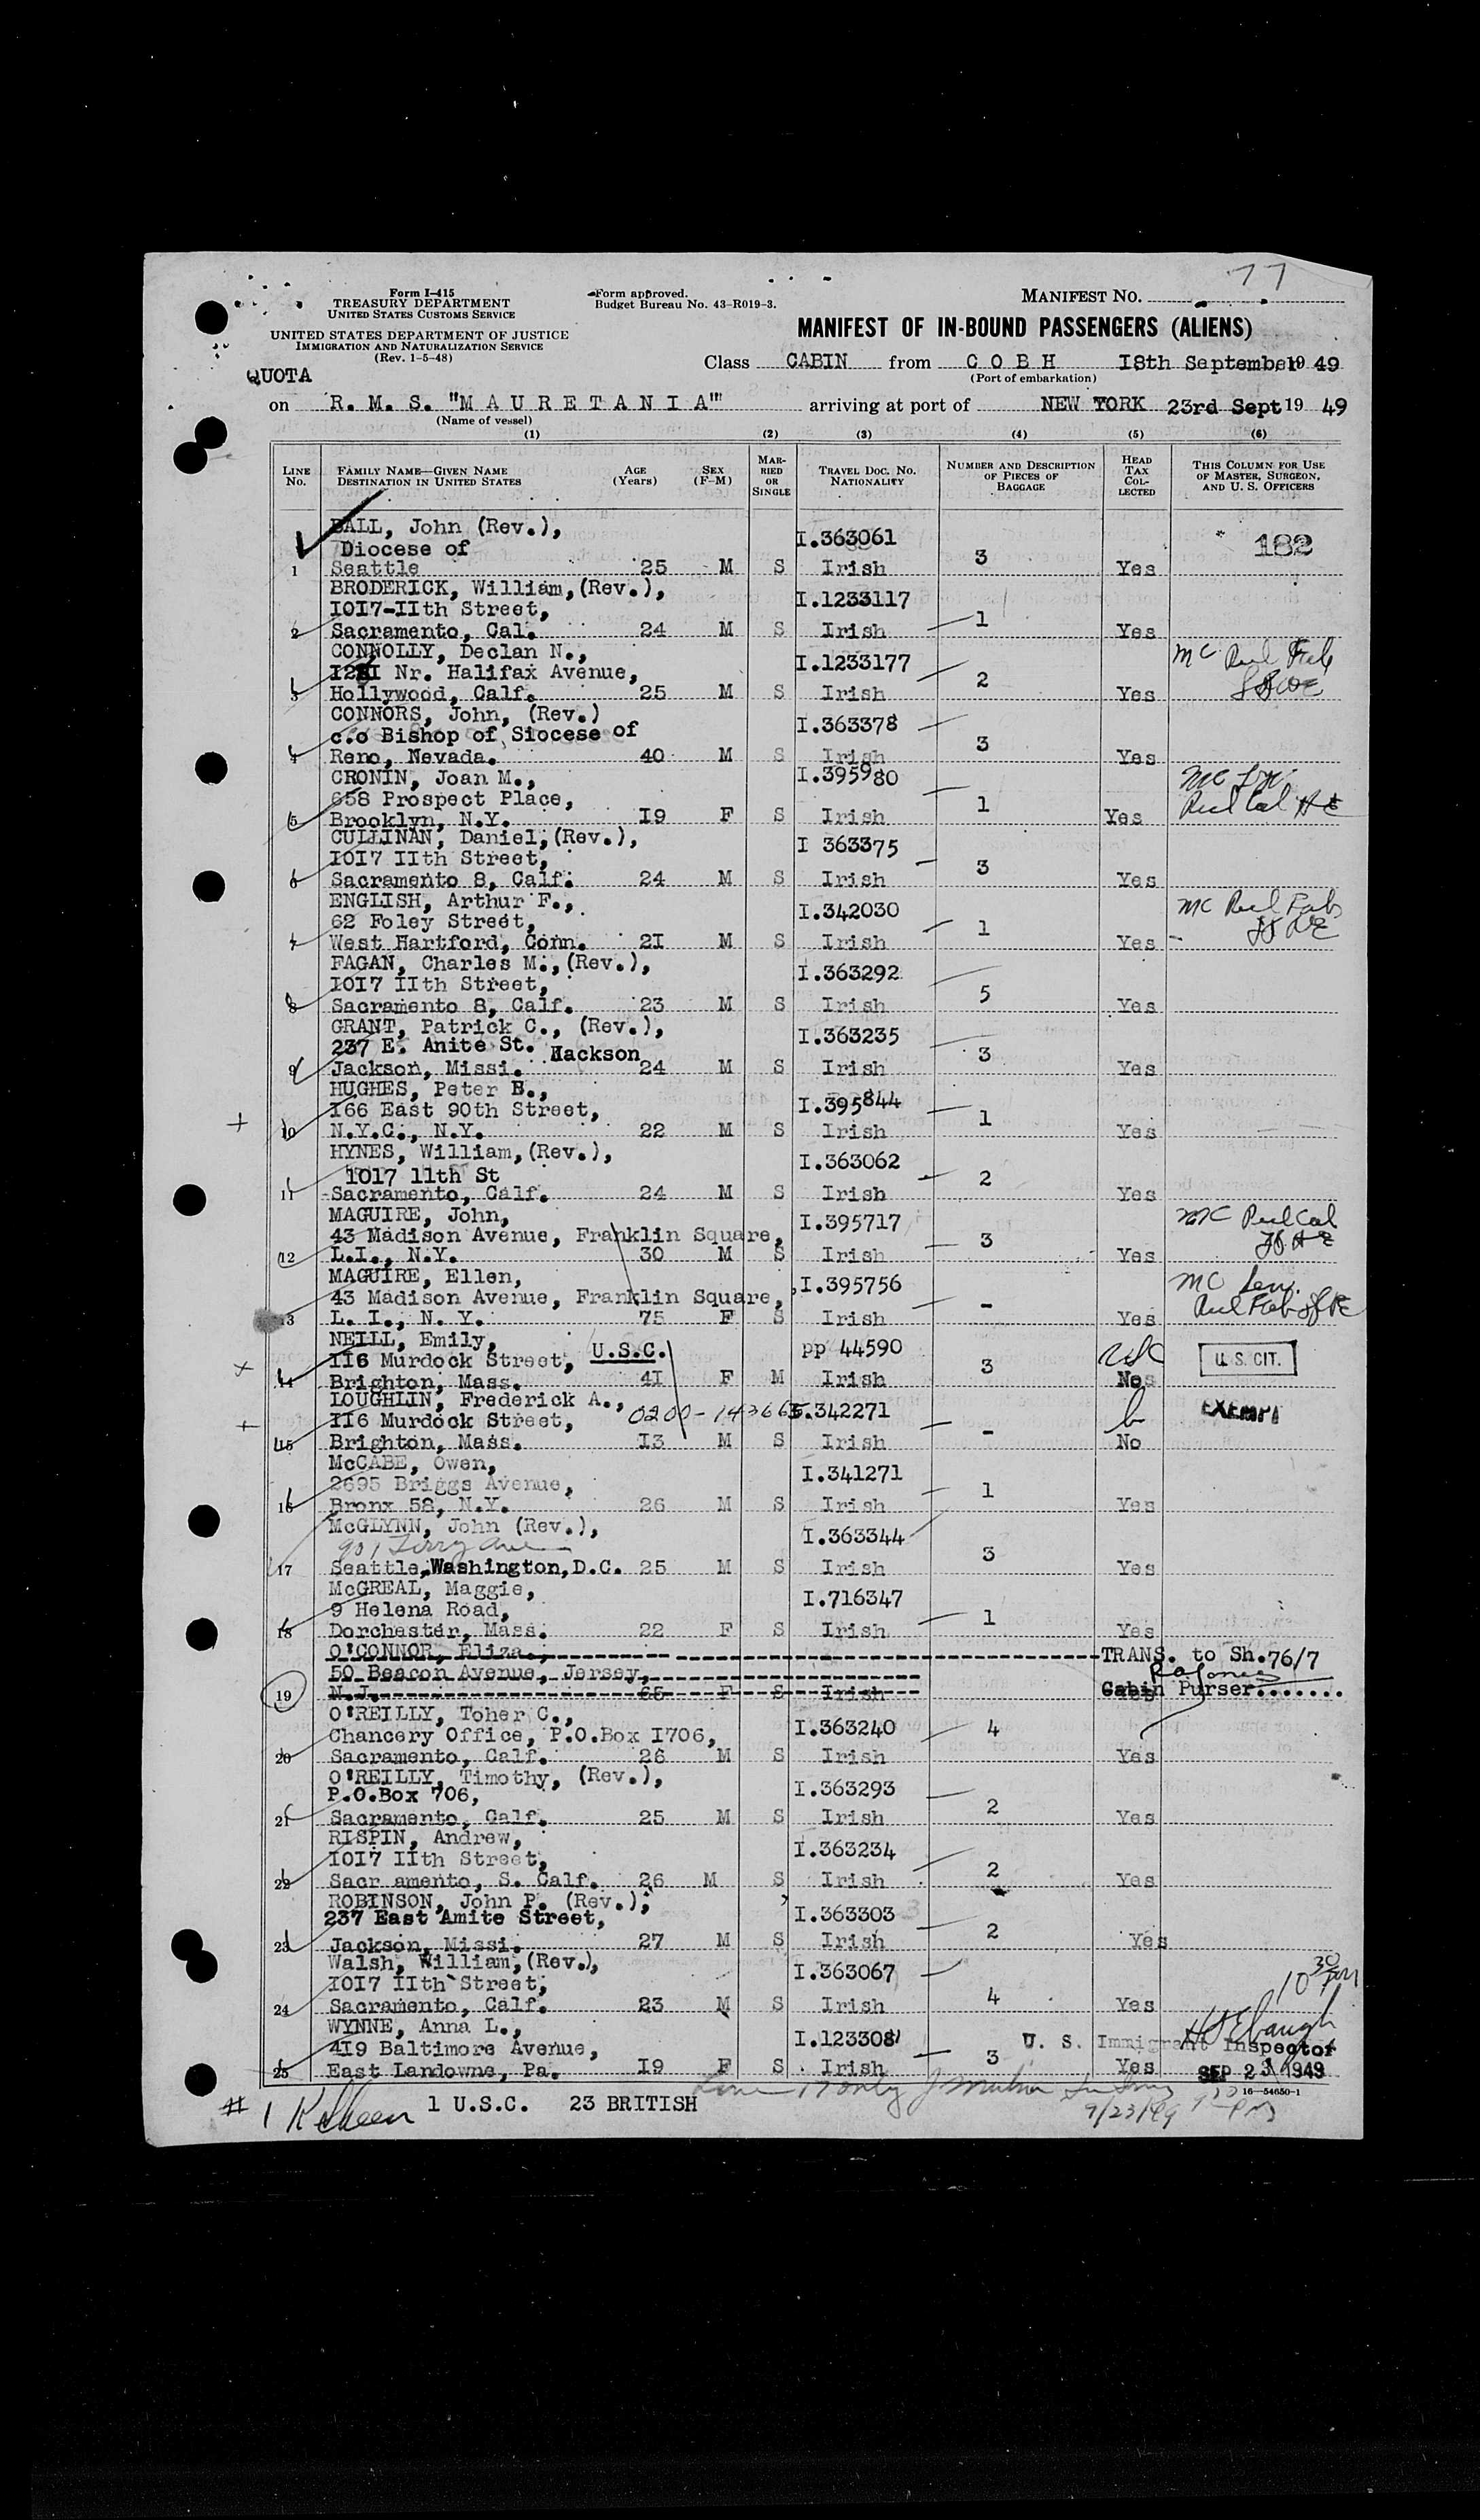 77
Form I-415
TREASURY DEPARTMENT
UNITED STATES CUSTOMS SERVICE
Form approved.
Budget Bureau No. 43-R019-3.
MANIFEST NO.
UNITED STATES DEPARTMENT OF JUSTICE
IMMIGRATION AND NATURALIZATION SERVICE
(Rev. 1-5-48)
MANIFEST OF IN-BOUND PASSENGERS (ALIENS)
QUOTA
Class CABIN from C O B H I8th September 19 49
(Port of embarkation)
on R. M. S. "M A U R E T A N I A" arriving at port of NEW YORK 23rd Sept 19 49
(Name of vessel)
(1) (2) (3) (4) (5) (6)
LINE No. FAMILY NAME—GIVEN NAME DESTINATION IN UNITED STATES AGE (Years) SEX (F-M) MARRIED OR SINGLE TRAVEL DOC. No. NATIONALITY NUMBER AND DESCRIPTION OF PIECES OF BAGGAGE HEAD TAX COLLECTED THIS COLUMN FOR USE OF MASTER, SURGEON, AND U. S. OFFICERS
BALL, John (Rev.), I.363061 182
Diocese of 3
1 Seattle 25 M S Irish Yes
BRODERICK, William, (Rev.),
I0I7-IIth Street, I.1233117 1
2 Sacramento, Cal. 24 M S Irish Yes
CONNOLLY, Declan N.,
I2 I Nr. Halifax Avenue, I.1233177 2
3 Hollywood, Calf. 25 M S Irish Yes
CONNORS, John, (Rev.)
c.o Bishop of Siocese of I.363378 3
4 Reno, Nevada. 40 M S Irish Yes
CRONIN, Joan M., I.395980
658 Prospect Place, 1
5 Brooklyn, N.Y. I9 F S Irish Yes
CULLINAN, Daniel, (Rev.), I 363375
I0I7 IIth Street, 3
6 Sacramento 8, Calf. 24 M S Irish Yes
ENGLISH, Arthur F., I.342030
62 Foley Street, 1
7 West Hartford, Conn. 2I M S Irish Yes
FAGAN, Charles M., (Rev.), I.363292
I0I7 IIth Street, 5
8 Sacramento 8, Calf. 23 M S Irish Yes
GRANT, Patrick C., (Rev.), I.363235
237 E. Anite St. Hackson 3
9 Jackson, Missi. 24 M S Irish Yes
HUGHES, Peter B., I.395844
I66 East 90th Street, 1
10 N.Y.C., N.Y. 22 M S Irish Yes
HYNES, William, (Rev.), I.363062
1017 11th St 2
11 Sacramento, Calf. 24 M S Irish Yes
MAGUIRE, John, I.395717
43 Madison Avenue, Franklin Square, 3
12 L.I., N.Y. 30 M S Irish Yes
MAGUIRE, Ellen, I.395756
43 Madison Avenue, Franklin Square, -
13 L. I., N. Y. 75 F S Irish Yes
NEILL, Emily, pp 44590
II6 Murdock Street, U.S.C. 3 USC U. S. CIT.
14 Brighton, Mass. 4I F M Irish No
LOUGHLIN, Frederick A., 0200-143665 I.342271 EXEMPT
II6 Murdock Street, -
15 Brighton, Mass. I3 M S Irish No
McCABE, Owen, I.341271
2695 Briggs Avenue, 1
16 Bronx 58, N.Y. 26 M S Irish Yes
McGLYNN, John (Rev.), I.363344
901 Terry Ave 3
17 Seattle, Washington, D.C. 25 M S Irish Yes
McGREAL, Maggie, I.716347
9 Helena Road, 1
18 Dorchester, Mass. 22 F S Irish Yes
O'CONNOR, Eliza., TRANS. to Sh.76/7
50 Beacon Avenue, Jersey,
19 N.J. 65 F S Irish Cabin Purser.......
O'REILLY, Toher C., I.363240
Chancery Office, P.O.Box I706, 4
20 Sacramento, Calf. 26 M S Irish Yes
O'REILLY, Timothy, (Rev.), I.363293
P.O.Box 706, 2
21 Sacramento, Calf. 25 M S Irish Yes
RISPIN, Andrew, I.363234
I0I7 IIth Street, 2
22 Sacr amento, S. Calf. 26 M S Irish Yes
ROBINSON, John P. (Rev.), I.363303
237 East Amite Street, 2
23 Jackson, Missi. 27 M S Irish Yes
Walsh, William, (Rev.), I.363067
I0I7 IIth Street, 4 10 30 PM
24 Sacramento, Calf. 23 M S Irish Yes
WYNNE, Anna L., I.1233081
419 Baltimore Avenue, 3 U. S. Immigrant Inspector
25 East Landowne, Pa. I9 F S Irish Yes SEP 23 1949
16—54650-1
# 1 1 U.S.C. 23 BRITISH
9/23/49